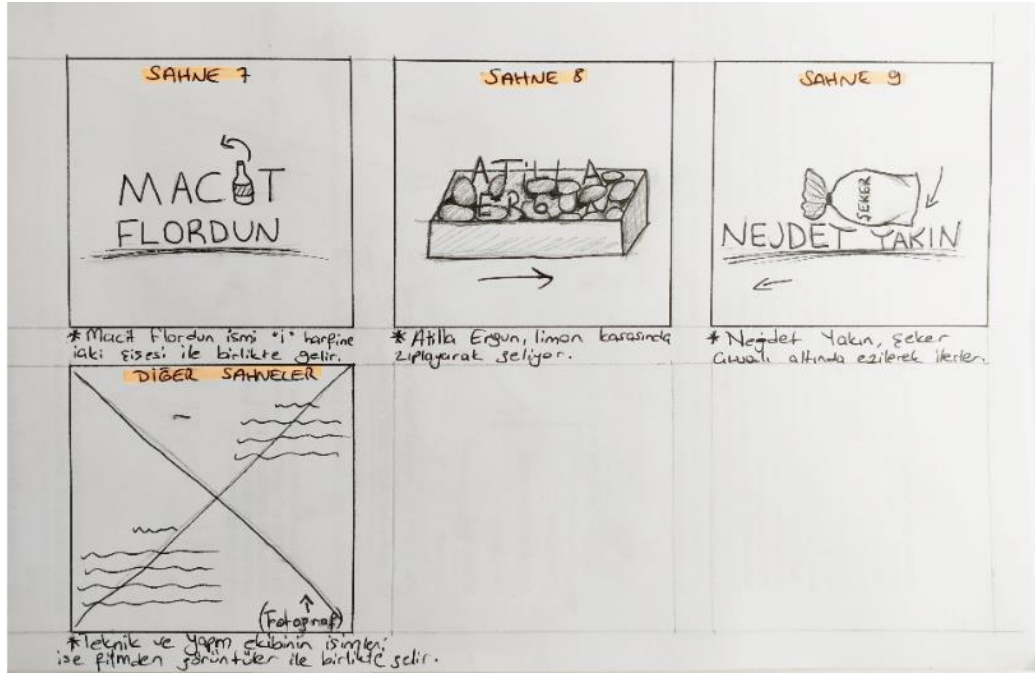 SAHNE 7
MACİT
FLORDUN
* Macit Flordun ismi "i" harfine
şişesi ile birlikte gelir.
SAHNE 8
ATİLLA
ERGUN
* Atilla Ergun, limon kasasında
zıplayarak geliyor.
SAHNE 9
ŞEKER
NEJDET YAKIN
* Nejdet Yakın, şeker
çuvalı altında ezilerek ilerler.
DİĞER SAHNELER
(Fotoğraf)
* Teknik ve yapım ekibinin isimleri
ise filmden görüntüler ile birlikte gelir.